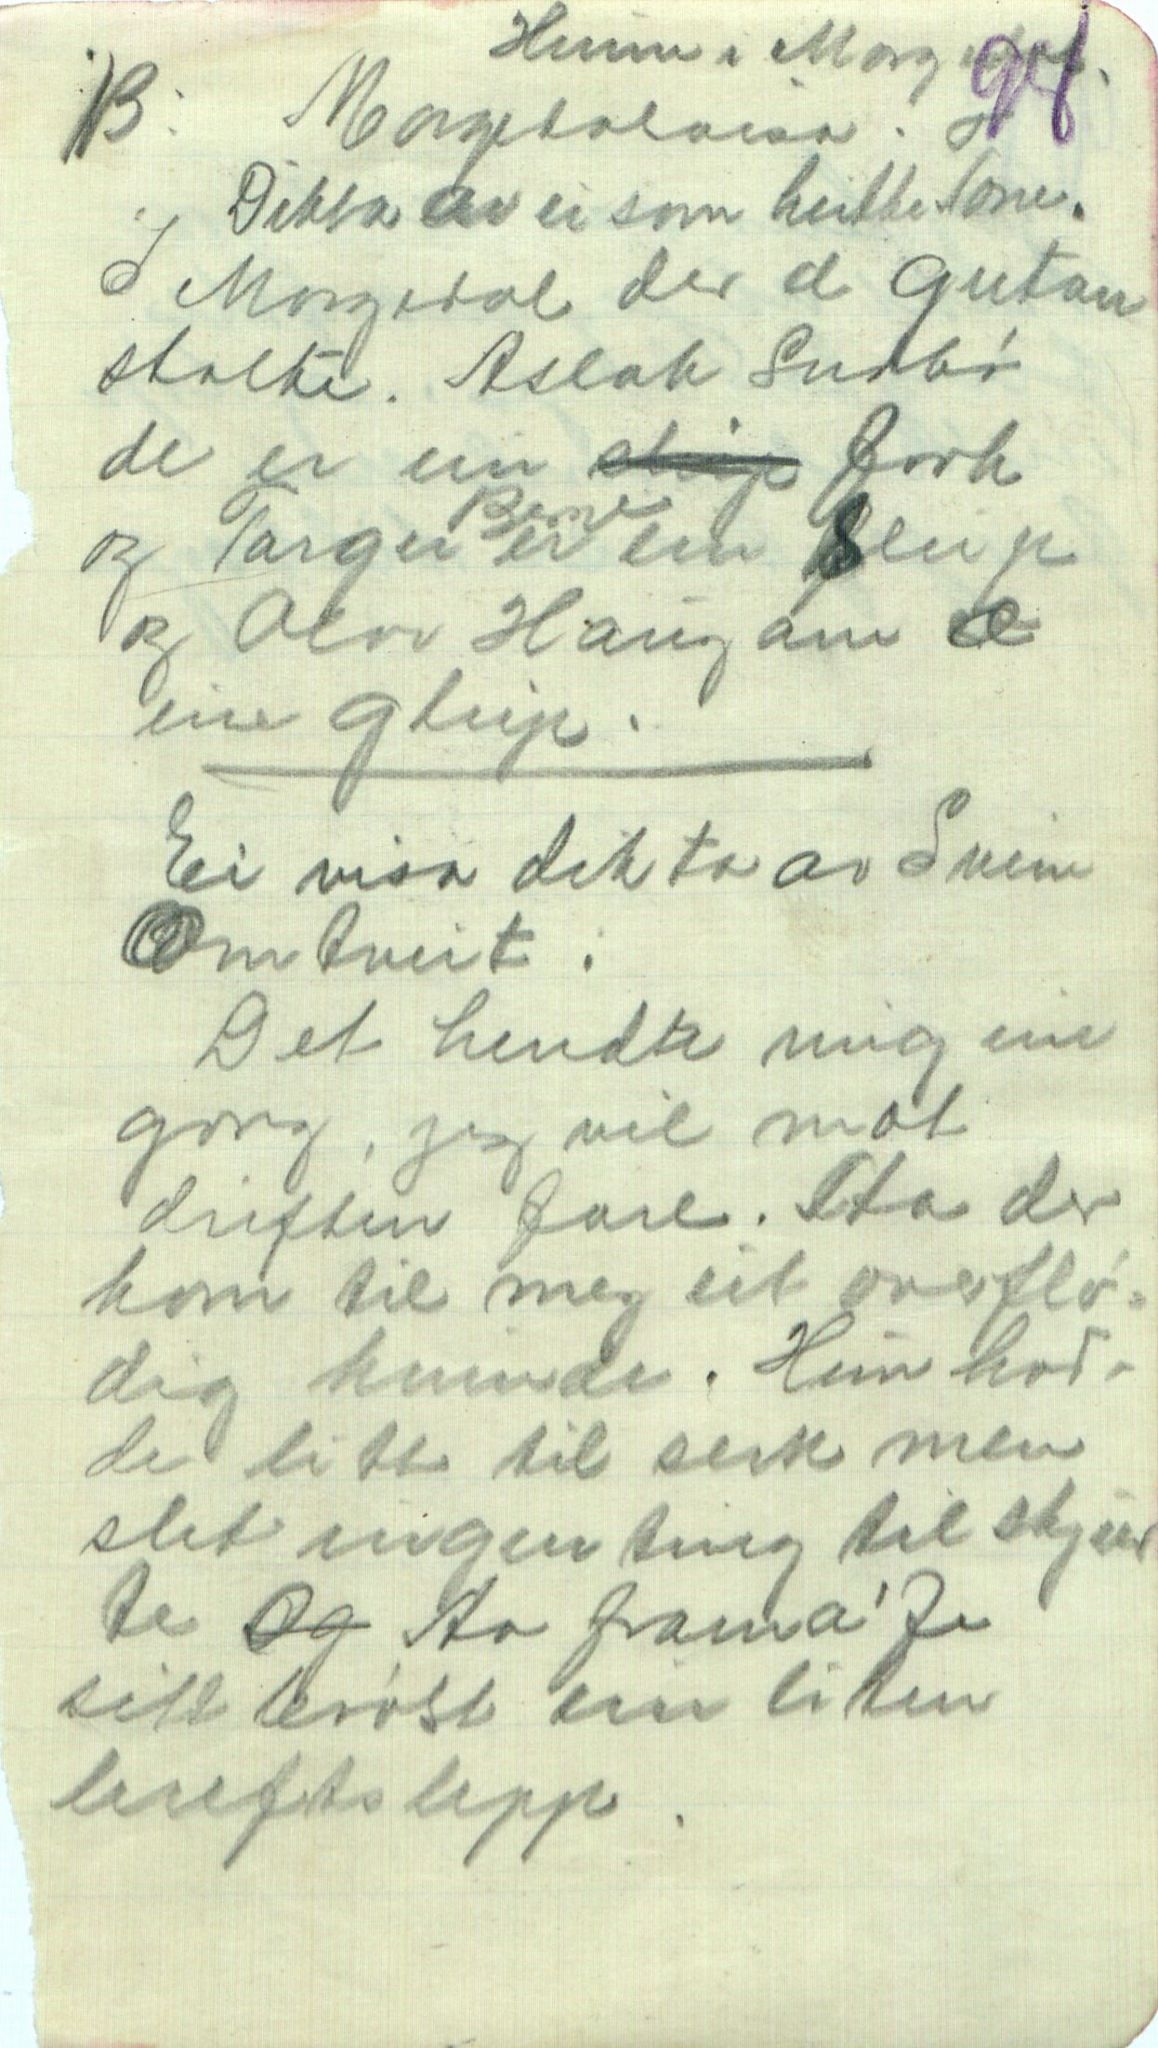 Heime i Morgedal.
B: Morgedalvisa. 97
Dikta av ei som heitte Tone.
I Morgedal der æ Gutan
stolte. Aslak Sudbö
de er ein fork
og Targei Berve er ein sleip
og Olav Haugane æ
ein gleip.
Ei visa dikta av Svein
Omtveit:
Det hendte mig ein
gong, jeg vil mot
driften fare. Sta der
kom til meg eit overflö-
dig kvinde. Hun had-
de litt til serk men
slet ingen ting til skjør
te Og To frama fe
sitt bröst ein liten
lereftslepp.